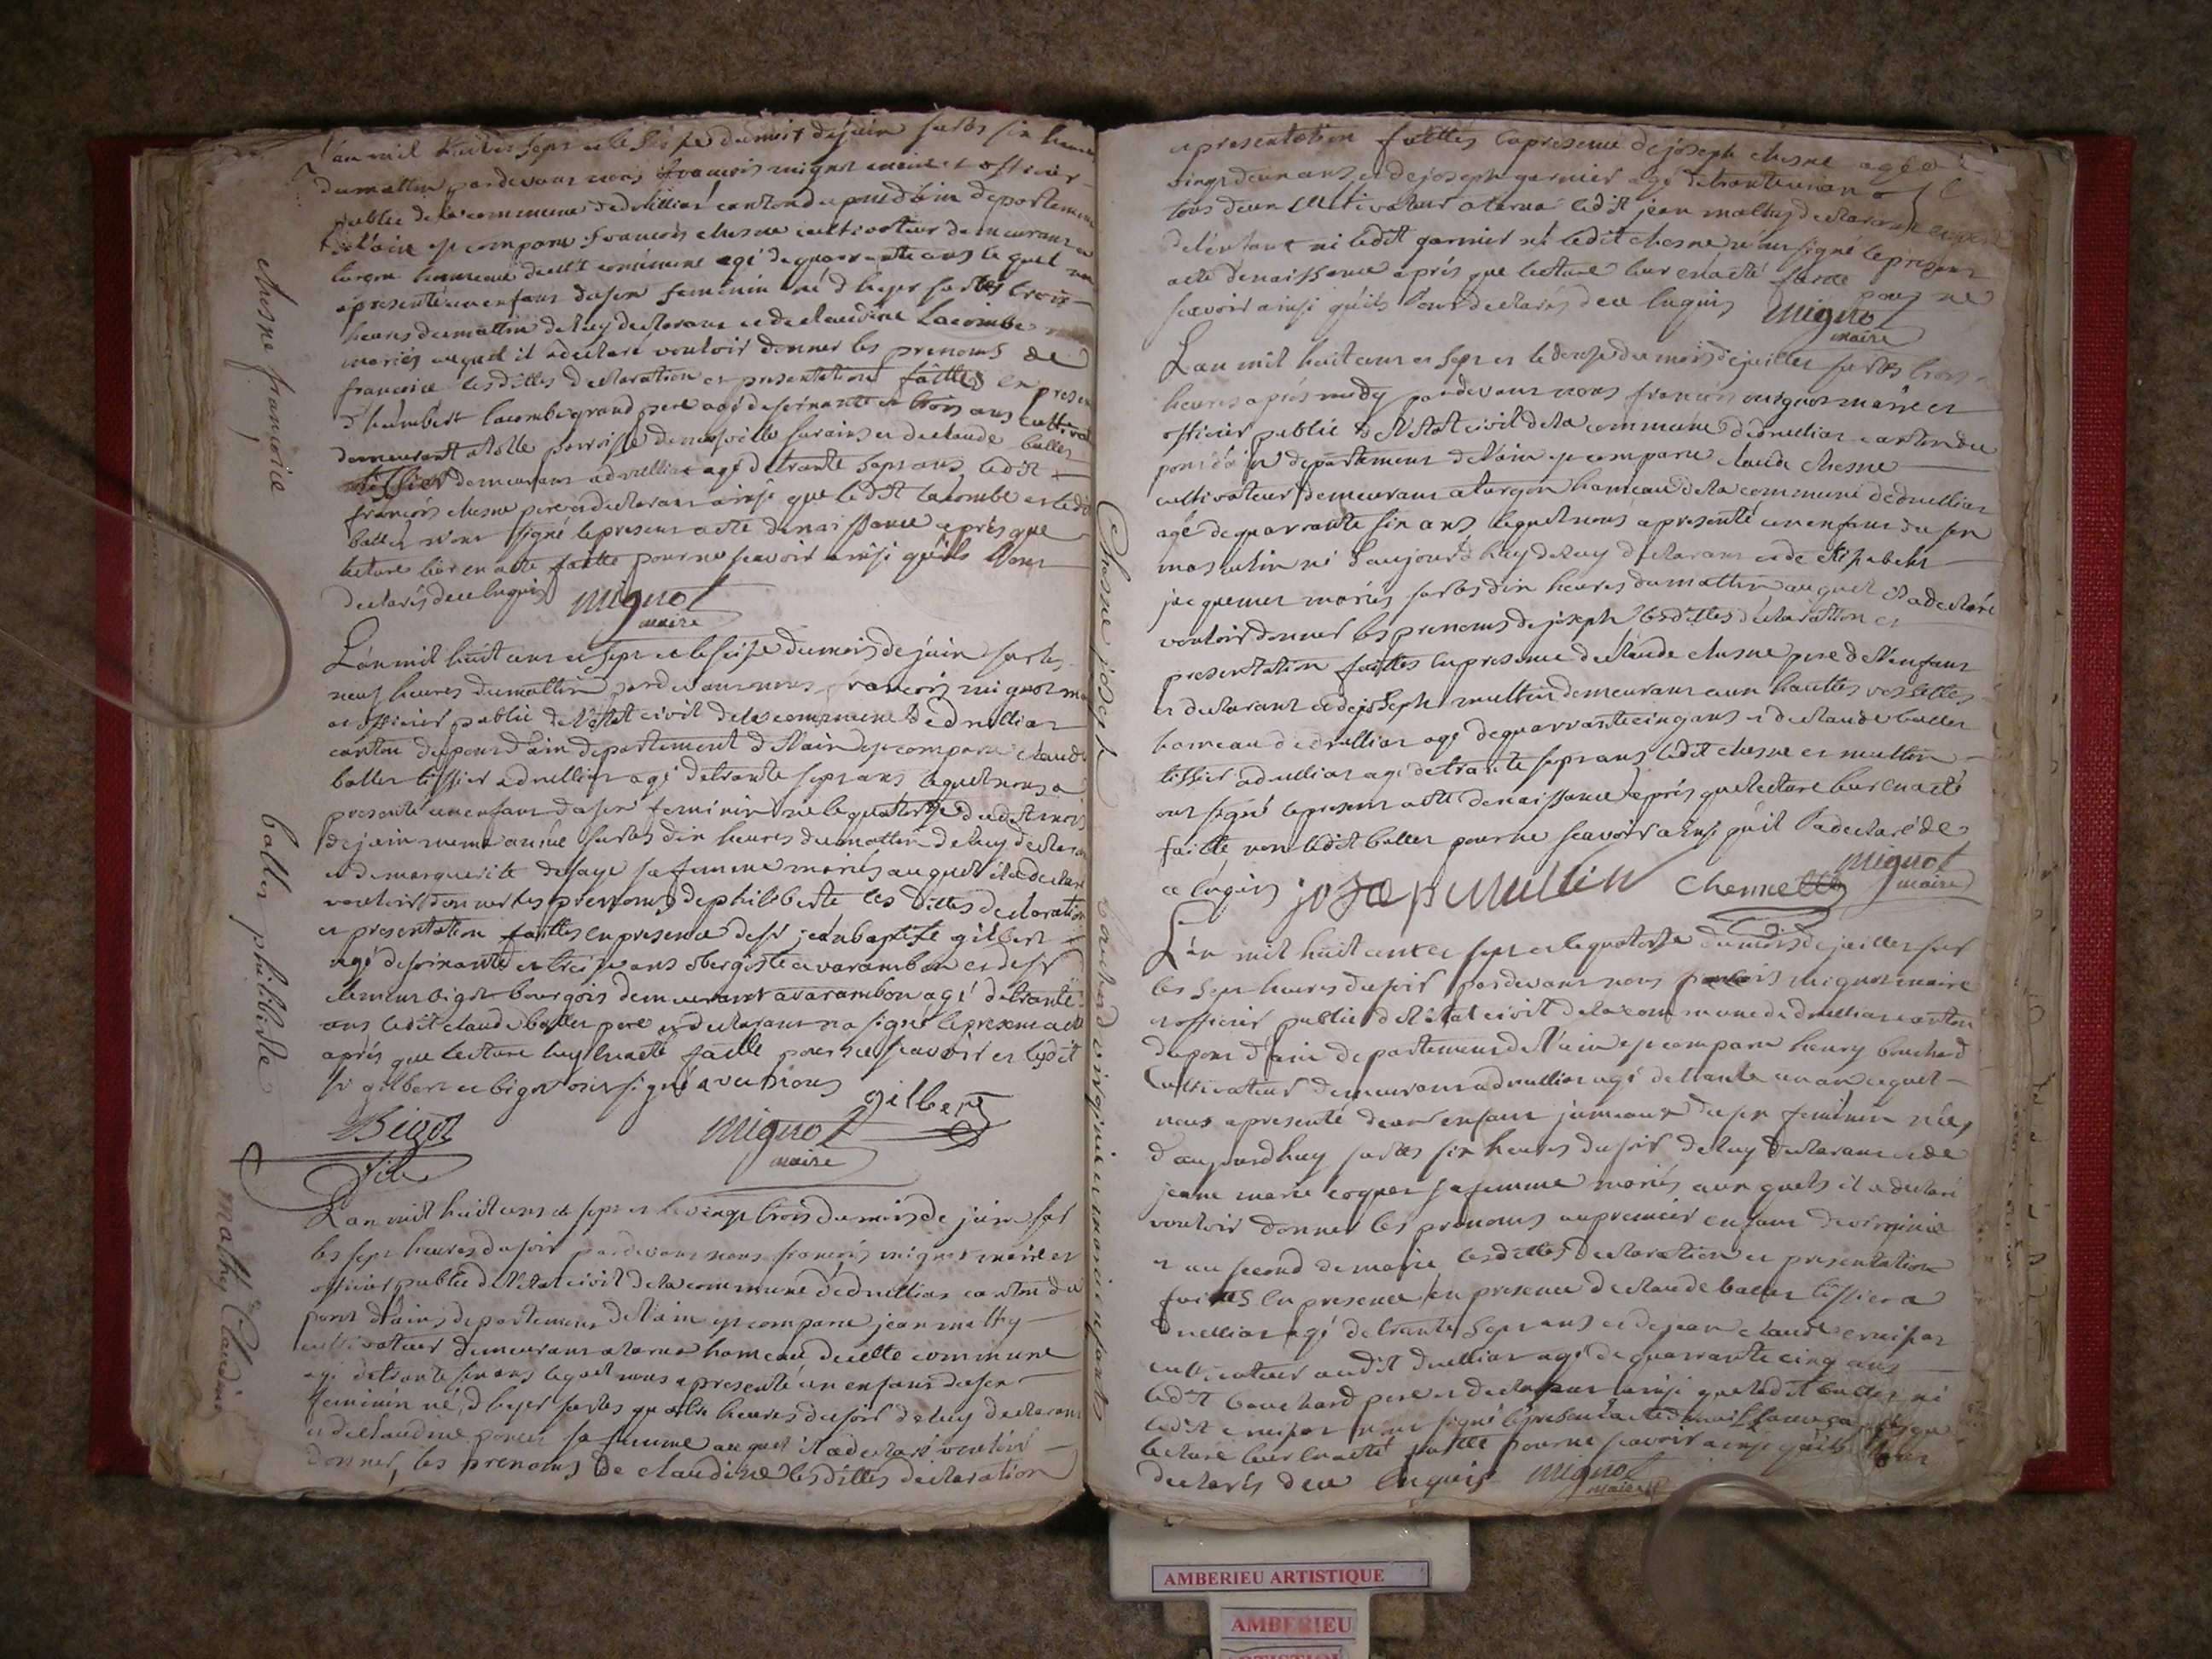 L'an mil huit cent sept et le seize du mois de juin sur les six heures
du mattin pardevant nous françois mignot maire et officier
public de la commune de druilliat canton du pont d'ain departement
de l'ain est comparu françois chesne cultivateur demeurant a
turgon hammeau de cette commune agé de quarante ans le quel nous
a presenté un enfant du sexe feminin né d'hyer sur les trois
heures du mattin de luy declarant et de claudine Lacombe
mariés auquel il a declaré vouloir donner les prenoms de
françoise lesdittes declaration et presentation faittes en presence
d'humbert lacombe grand pere agé de soixante et trois ans cultivateur
demeurant a paroisse de neufville sur ains et de claude ballet
tissier demeurant a druilliat agé de trante sept ans ledit
françois chesne pere et declarant ainsi que ledit lacombe et ledit
ballet n'ont signé le present acte de naissance après que
lecture leur en a été faitte pour ne scavoir ainsi qu'ils l'ont
declarés de ce enquis mignot
maire
L'an mil huit cent et sept et le seize du mois de juin sur les
neuf heures du mattin pardevant nous françois mignot maire
et officier public de l'état civil de la commune de druilliat
canton du pont d'ain departement de l'ain est comparu claude
ballet tissier a druilliat agé de trante sept ans lequel nous a
presenté un enfant du sexe feminin né le quatorze dudit mois
de juin meme année sur les dix heures du mattin de luy declarant
et de marguerite desaye sa femme mariés auquel il a declaré
vouloir donner les prenoms de philiberte les dittes declaration
et presentation faittes en presence de sr jean baptiste gilbert
agé de soixante et treize ans obergiste a varambon et de sr
bigot bourgois demeurant a varambon agé de trante
ans ledit claude ballet pere et declarant n'a signé le present acte
après que lecture luy en a été faitte pour ne scavoir et ledit
sr gilbert et bigot ont signé avec nous
gilbert
Bigot
fils
mignot
maire
L'an mil huit cent et sept et le vingt trois du mois de juin sur
les sept heures du soir pardevant nous françois mignot maire et
officier public de l'état civil de la commune de druilliat canton du
pont d'ain departement de l'ain est comparu jean mathy
cultivateur demeurant a hameau de cette commune
agé de trante six ans lequel nous a presenté un enfant du sexe
feminin né d'hyer sur les quatre heures du soir de luy declarant
et de claudine poncet sa femme auquel il a declaré vouloir
donner les prenoms de claudine lesdittes declaration
chesne françoise
ballet philiberte
mathy Claudine
et presentation faittes en presence de joseph chesne agé de
vingt deux ans et de joseph garnier agé de trante un an
tous deux cultivateur a ledit jean mathy declarant et pere
de l'enfant ni ledit garnier ni ledit chesne n'ont signé le present
acte de naissance après que lecture leur en a été faitte pour ne
scavoir ainsi qu'ils l'ont declarés de ce enquis mignot
maire
L'an mil huit cent et sept et le douze du mois de juillet sur les trois
heures après midy pardevant nous françois mignot maire et
officier public de l'état civil de la commune de druilliat canton du
pont d'ain departement de l'ain est comparu claude chesne
cultivateur demeurant a turgon hameau de la commune de druilliat
agé de quarante six ans lequel nous a presenté un enfant du sexe
masculin né d'aujourd'huy de luy declarant et de elizabeht
jacquemet mariés sur les dix heures du mattin auquel il a declaré
vouloir donner les prenoms de joseph lesdittes declaration et
presentation faittes en presence de claude chesne pere de l'enfant
et declarant et de joseph mullin demeurant aux hauttes vesselles
hameau de druilliat agé de quarante cinq ans et de claude ballet
tissier a druilliat agé de trante sept ans ledit chesne et mullin
ont signé le present acte de naissance après que lecture leur en a été
faitte non ledit ballet pour ne scavoir ainsi qu'il l'a declaré de
ce enquis joseph Mullin
mignot
maire
L'an mil huit cent et sept et le quatorze du mois de juillet sur
les sept heures du soir pardevant nous françois mignot maire
et officier public de l'état civil de la commune de druilliat canton
du pont d'ain departement de l'ain est comparu henry bouchard
cultivateur demeurant a druilliat agé de trante un an lequel
nous a presenté deux enfant jumeaux du sexe feminin nés
d'aujourdhuy sur les six heures du soir de luy declarant et de
jeane marie coquet sa femme mariés aux quels il a declaré
vouloir donner les prenoms au premier enfant de virginie
et au second de marie lesdittes declaration et presentation
faittes en presence en presence de claude ballet tissier a
druilliat agé de trante sept ans et de jean claude
cultivateur audit druilliat agé de quarante cinq ans
ledit bouchard pere et declarant ainsi que ledit ballet ni
ledit n'ont signé le present acte de naissance après que
lecture leur en a été faitte pour ne scavoir ainsi qu'ils l'ont
declarés de ce enquis mignot
maire
Chesne joseph
bouchard virginie et marie enfants
AMBERIEU ARTISTIQUE
AMBERIEU
ARTISTIQUE